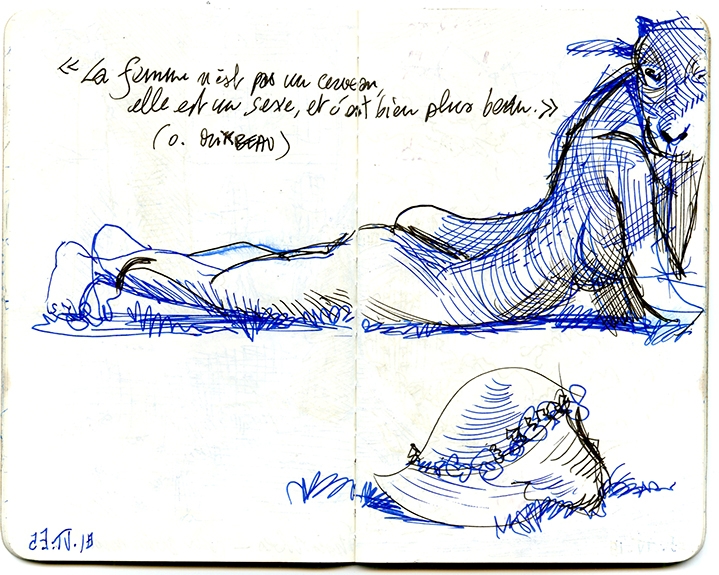 « La femme n'est pas un cerveau,
elle est un sexe, et c'est bien plus beau. »
(O. MIRBEAU)